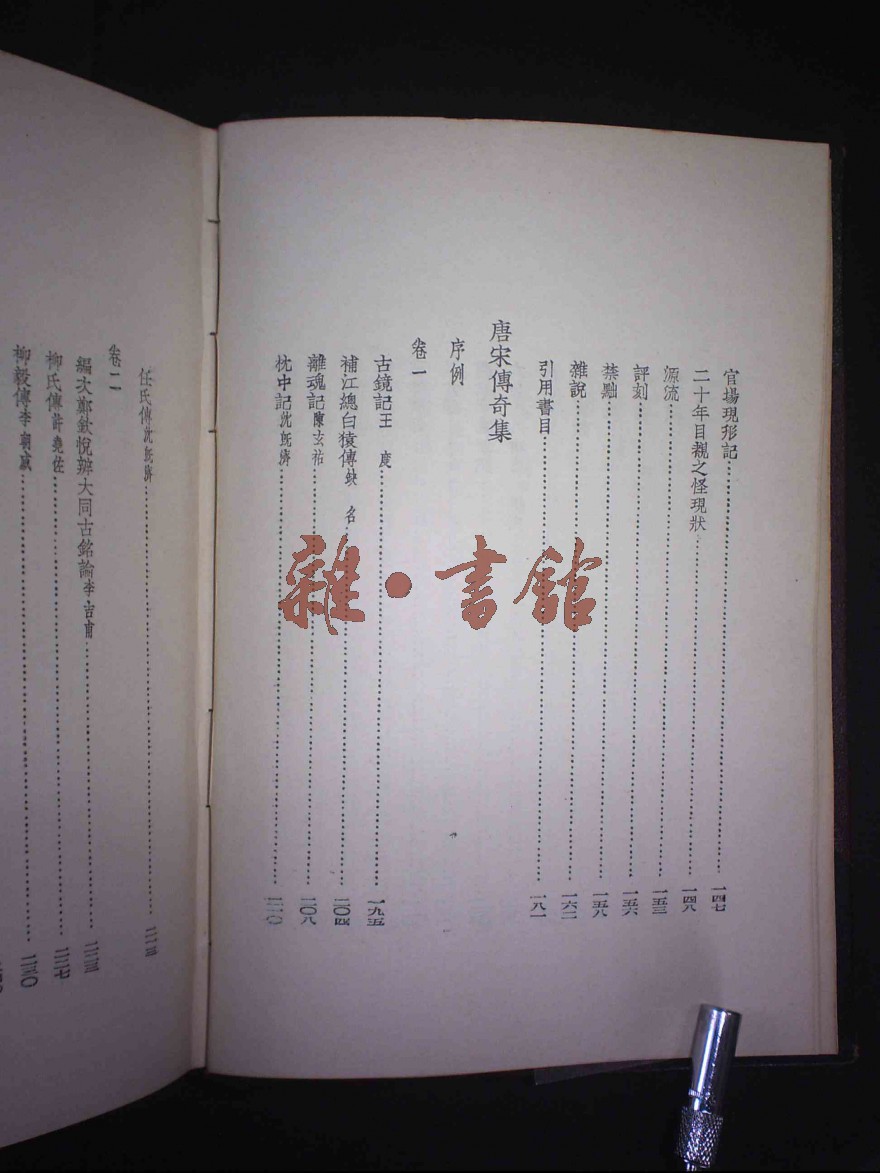 官場現形記……一四七
二十年目覩之怪現狀……一四八
源流……一五三
評刻……一五六
禁黜……一五八
雜說……一六二
引用書目……一八一
唐宋傳奇集
序例
卷一
古鏡記 王 度……一九五
補江總白猿傳 缺 名……二〇四
離魂記 陳玄祐……二〇八
枕中記 沈旣濟……二一〇
任氏傳 沈旣濟……二一三
卷二
編次鄭欽悅辨大同古銘論 李吉甫……二二三
柳氏傳 許堯佐……二二七
柳毅傳 李朝威……二三〇
雜·書館